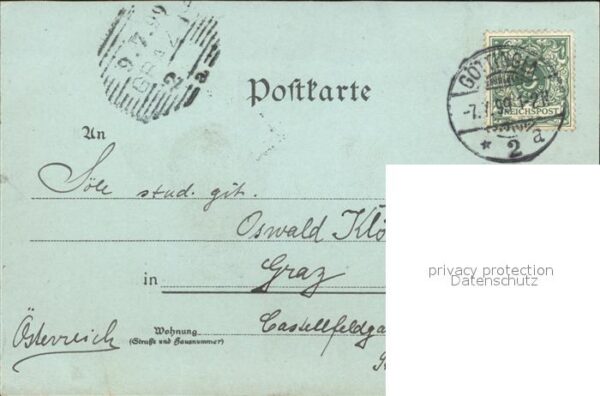 9.7.99
GRAZ
2
a
Postkarte
GÖTTINGEN
-7.7.99.1-2N.
* 2 a
5
REICHSPOST
An
stud.
Oswald Klö
in Graz
Castellfeldga
Österreich
Wohnung
(Straße und Hausnummer)
privacy protection
Datenschutz